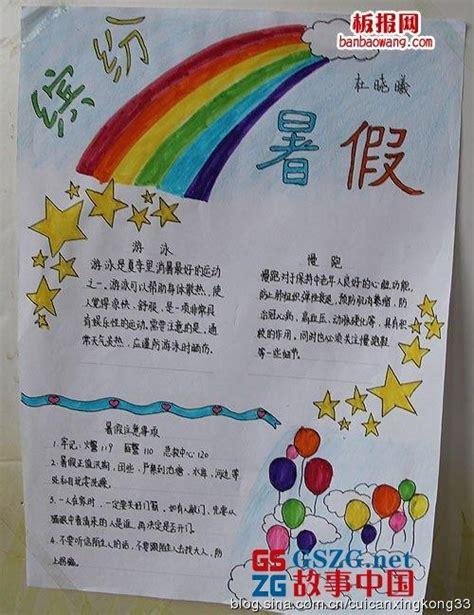 板报网
banbaowang.com
缤纷
杜晓曦
暑假
游泳
游泳是夏季里消暑最好的运动
之一。游泳可以帮助身体散热,使
人觉得凉快、舒服,是一项非常具
有娱乐性的运动。需要注意的是,通
常天气炎热,应谨防游泳时
慢跑
慢跑对于保持中老年人良好的心脏功能,
防止肺组织弹性衰退,预防肌肉萎缩,防
治冠心病,高血压,动脉硬化等,具有积
极的作用。同时也必须关注慢跑鞋
等一些细节。
暑假注意事项
1.牢记:火警119 报警110 急救中心120
2.暑假正值汛期,因此,严禁到池塘,水库,河边等
处私自玩耍洗澡。
3.一人在家时,一定要关好门窗,如有人敲门,先要从
猫眼中看清来的人是谁,再决定是否开门。
4.不要听信陌生人的话,不要跟陌生人去找大人,防
上拐骗。
GSZG
GSZG.net
故事中国
blog.sina.com.cn/cuicanxingkong33